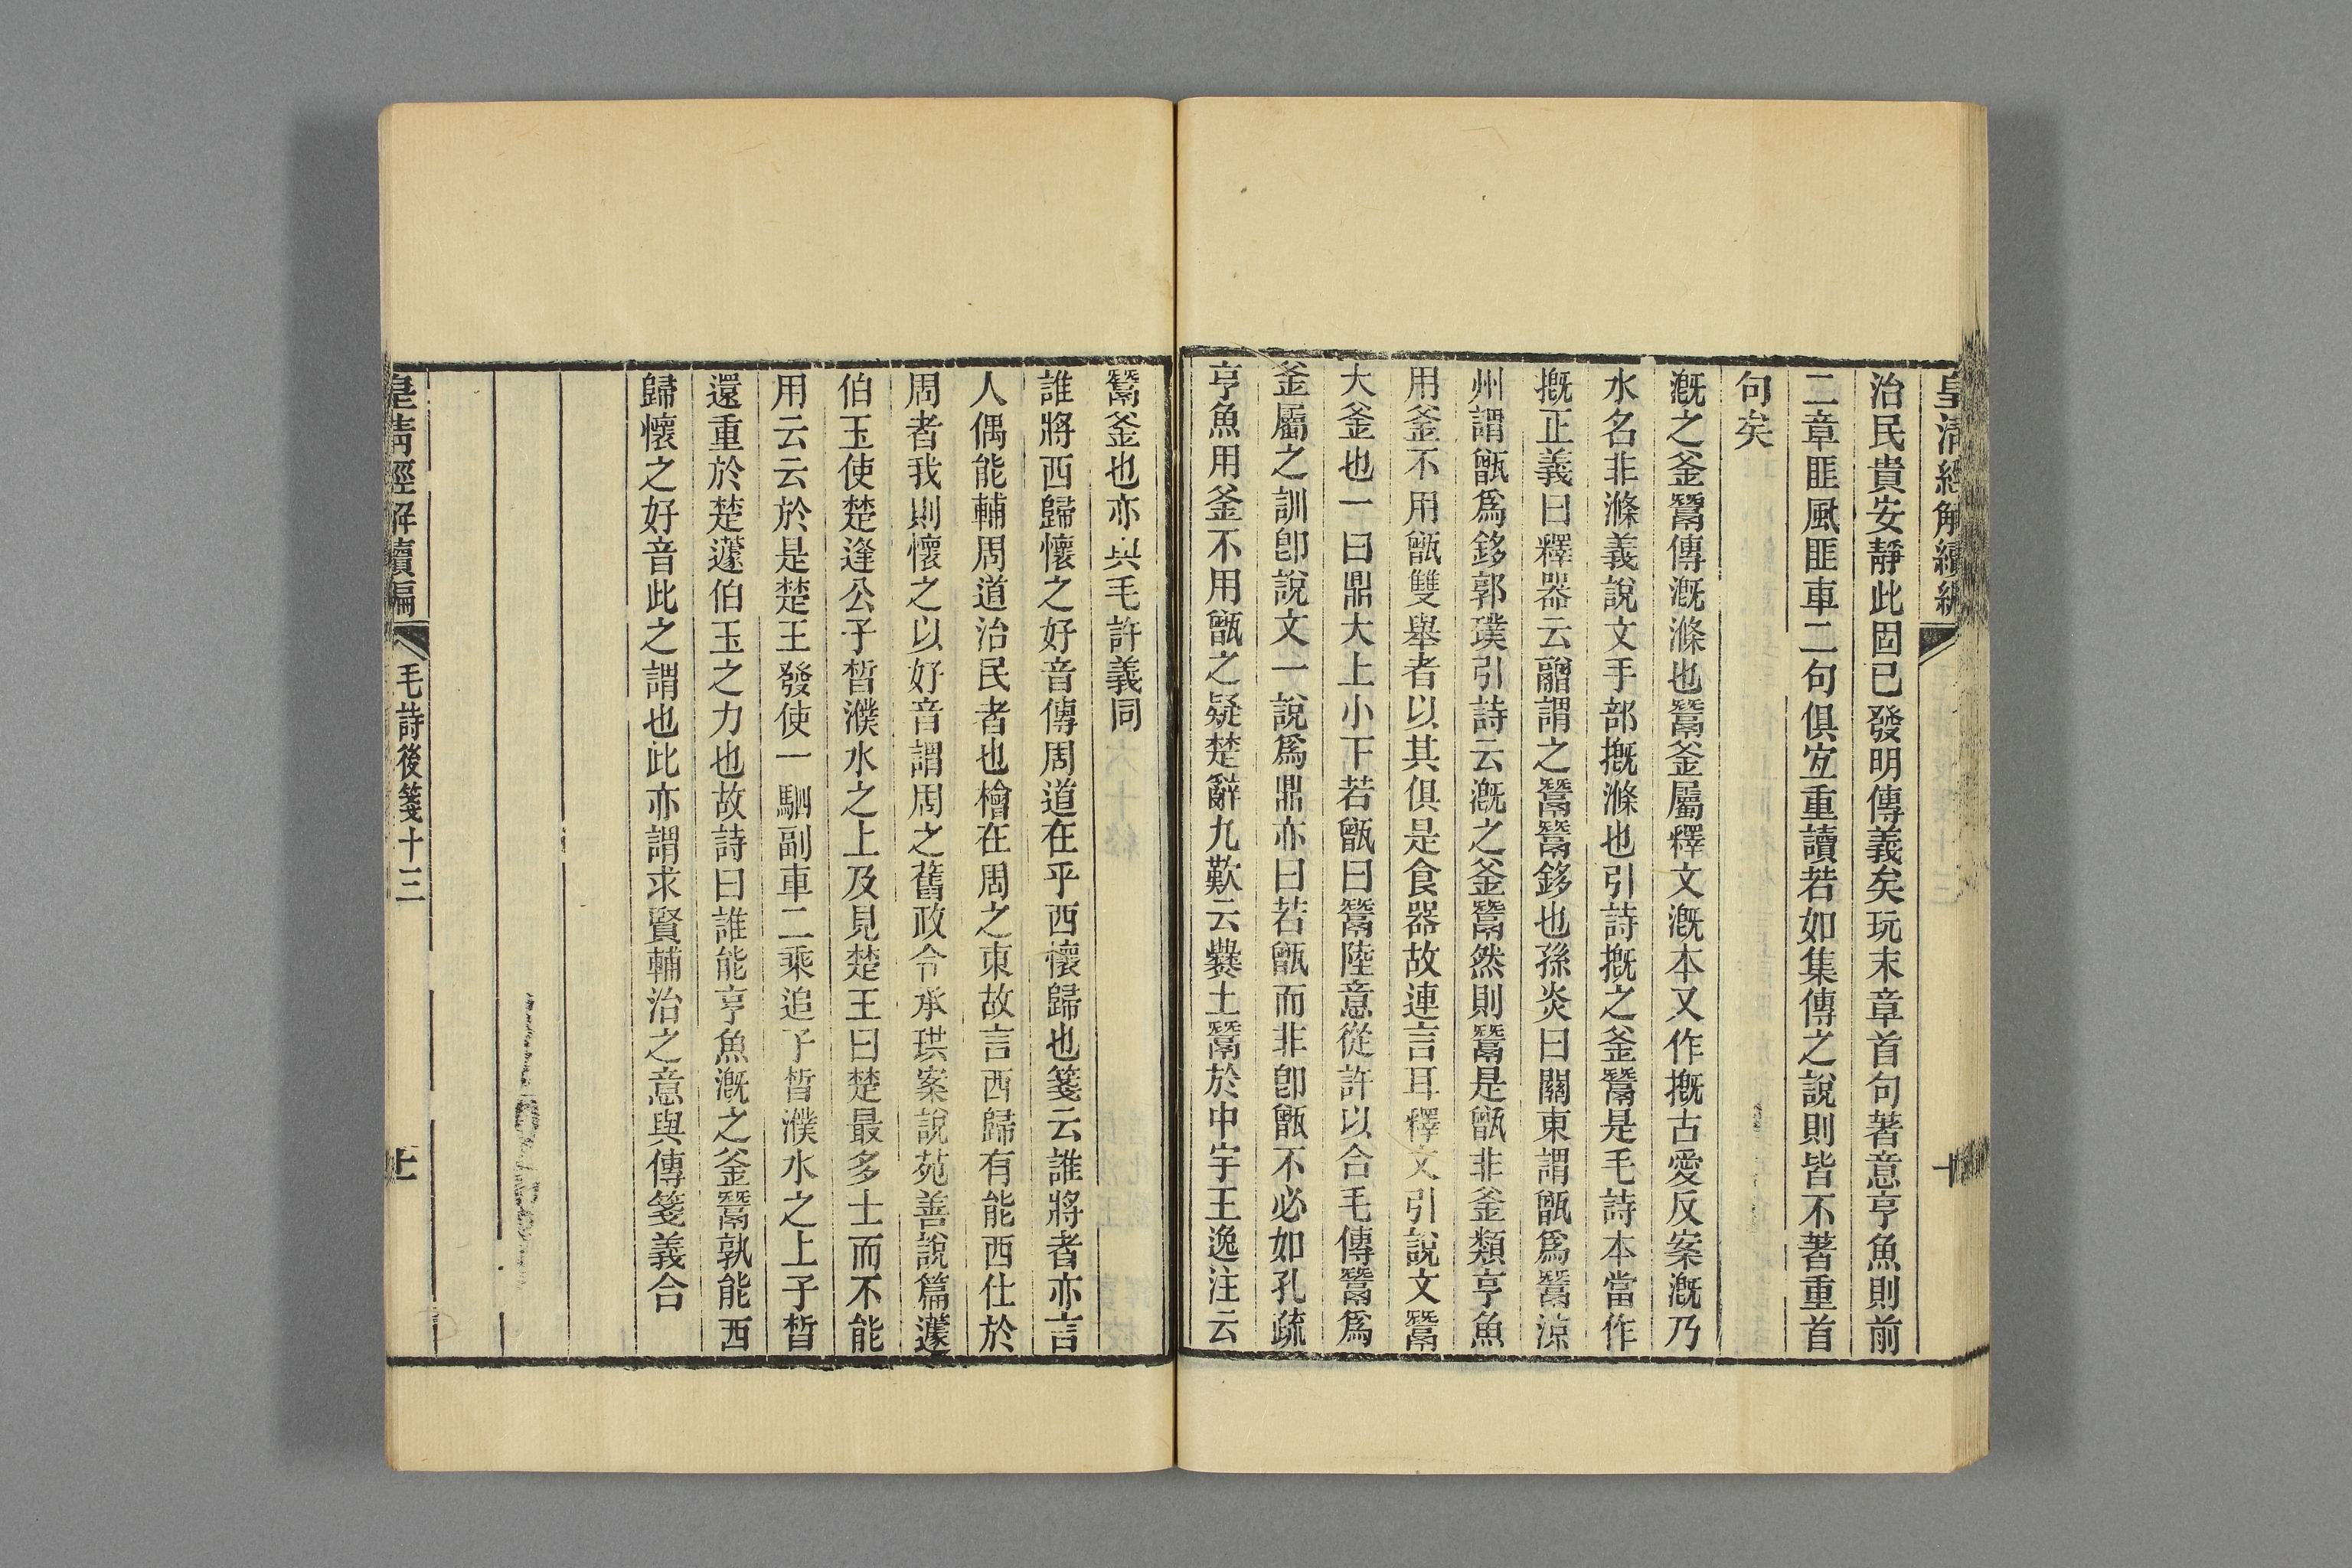 皇清經解續編
治民貴安靜此固已發明傳義矣玩末章首句著意亨魚則前
二章匪風匪車二句俱宜重讀若如集傳之說則皆不著重首
句矣
漑之釜鬵傳漑滌也鬵釜屬釋文漑本又作摡古愛反案漑乃
水名非滌義說文手部摡滌也引詩摡之釜鬵是毛詩本當作
摡正義曰釋器云䰝謂之鬵鬵鉹也孫炎曰關東謂甑爲鬵涼
州謂甑爲鉹郭璞引詩云漑之釜鬵然則鬵是甑非釜類亨魚
用釜不用甑雙舉者以其俱是食器故連言耳釋文引說文鬵
大釜也一曰鼎大上小下若甑曰鬵陸意從許以合毛傳鬵爲
釜屬之訓卽說文一說爲鼎亦曰若甑而非卽甑不必如孔疏
亨魚用釜不用甑之疑楚辭九歎云爨土鬵於中宇王逸注云
鬵釜也亦與毛許義同
誰將西歸懷之好音傳周道在乎西懷歸也箋云誰將者亦言
人偶能輔周道治民者也檜在周之東故言西歸有能西仕於
周者我則懷之以好音謂周之舊政令承珙案說苑善說篇蘧
伯玉使楚逢公子晳濮水之上及見楚王曰楚最多士而不能
用云云於是楚王發使一駟副車二乘追子晳濮水之上子晳
還重於楚蘧伯玉之力也故詩曰誰能亨魚漑之釜鬵孰能西
歸懷之好音此之謂也此亦謂求賢輔治之意與傳箋義合
皇淸經解續編
毛詩後箋十三